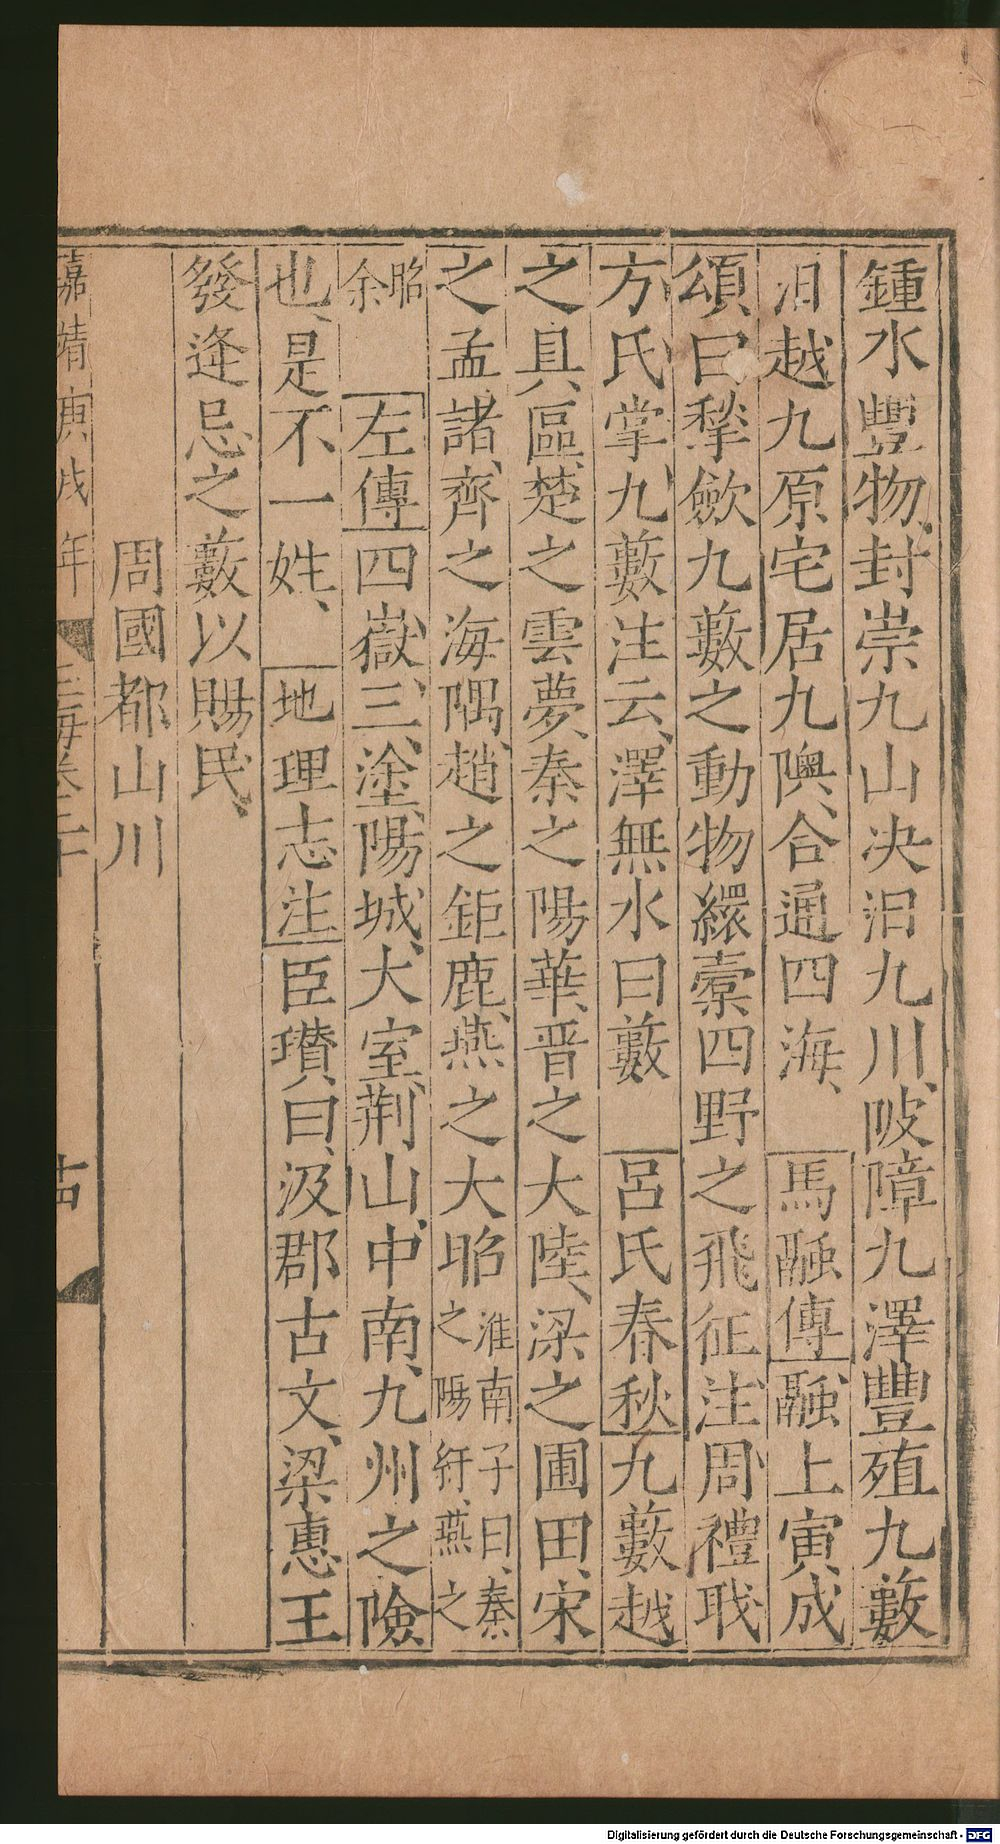 鍾水豐物封崇九山决汩九川陂障九澤豐殖九藪
汩越九原宅居九隩合通四海 馬融傳融上寅成
頌曰揫斂九藪之動物繯橐四野之飛征注周禮職
方氏掌九藪注云澤無水曰藪 呂氏春秋九藪越
之具區楚之雲夢秦之陽華晋之大陸梁之圃田宋
之孟諸齊之海隅趙之鉅鹿燕之大昭淮南子曰秦之陽紆燕之
昭余 左傳四嶽三塗陽城大室荆山中南九州之險
也是不一姓 地理志注臣瓚曰汲郡古文梁惠王
發逄忌之藪以賜民
周國都山川
嘉靖庚戌年 玉海卷二十
Digitalisierung gefördert durch die Deutsche Forschungsgemeinschaft - DFG